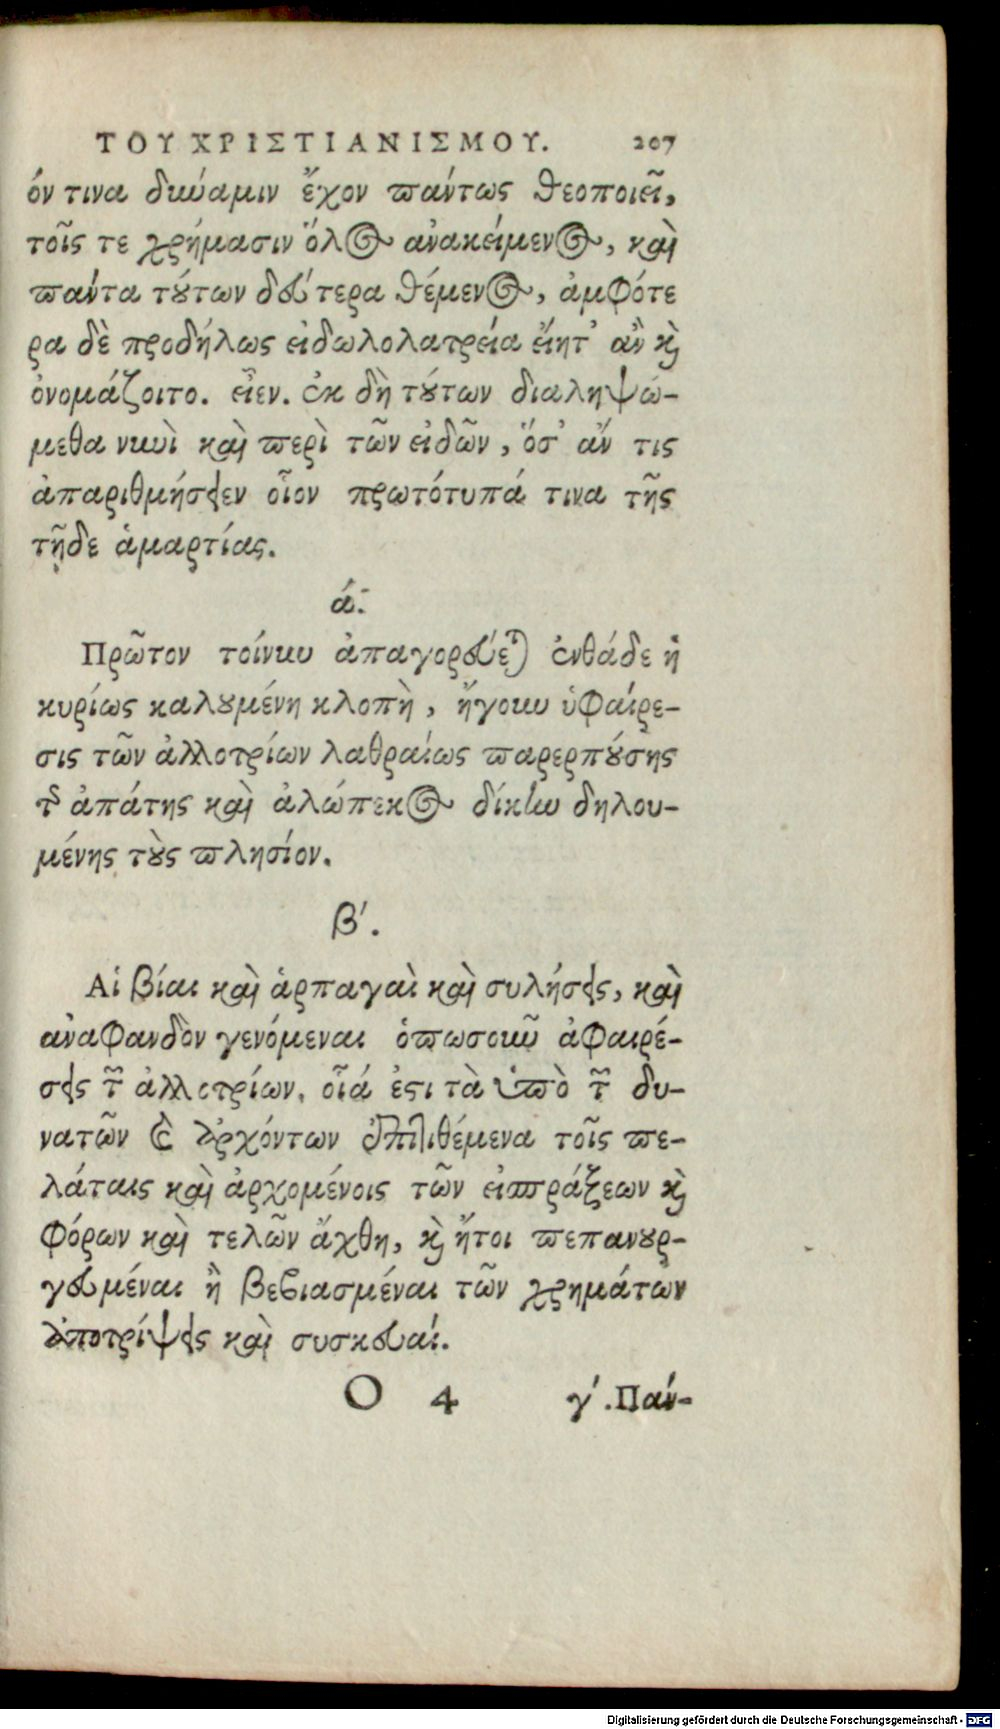 ΤΟΥ ΧΡΙΣΤΙΑΝΙΣΜΟΥ. 207
όν τινα δύναμιν ἔχον πάντως θεοποιεῖ,
τοῖς τε χρήμασιν ὅλος ἀνακείμενος, καὶ
πάντα τούτων δεύτερα θέμενος, ἀμφότε
ρα δὲ προδήλως εἰδωλολατρεία εἴητ' ἂν καὶ
ὀνομάζοιτο. εἶεν. ἐκ δὴ τούτων διαληψώ-
μεθα νυνὶ καὶ περὶ τῶν εἰδῶν, ὅσ' ἄν τις
ἀπαριθμήσειεν οἷον πρωτότυπά τινα τῆς
τῇδε ἁμαρτίας.
ά.
Πρῶτον τοίνυν ἀπαγορεύεται ἐνθάδε ἡ
κυρίως καλουμένη κλοπὴ, ἤγουν ὑφαίρε-
σις τῶν ἀλλοτρίων λαθραίως παρερπούσης
τῆς ἀπάτης καὶ ἀλώπεκος δίκην δηλου-
μένης τοὺς πλησίον.
β'.
Αἱ βίαι καὶ ἁρπαγαὶ καὶ συλήσεις, καὶ
ἀναφανδὸν γενόμεναι ὁπωσοῦν ἀφαιρέ-
σεις τῶν ἀλλοτρίων, οἷά ἐστι τὰ ὑπὸ τῶν δυ-
νατῶν καὶ ἀρχόντων ἐπιτιθέμενα τοῖς πε-
λάταις καὶ ἀρχομένοις τῶν εἰσπράξεων καὶ
φόρων καὶ τελῶν ἄχθη, καὶ ἤτοι πεπανουρ-
γευμέναι ἢ βεβιασμέναι τῶν χρημάτων
ἀποτρίψεις καὶ συσκευαί.
O 4 γ'. Πάν-
Digitalisierung gefördert durch die Deutsche Forschungsgemeinschaft - DFG